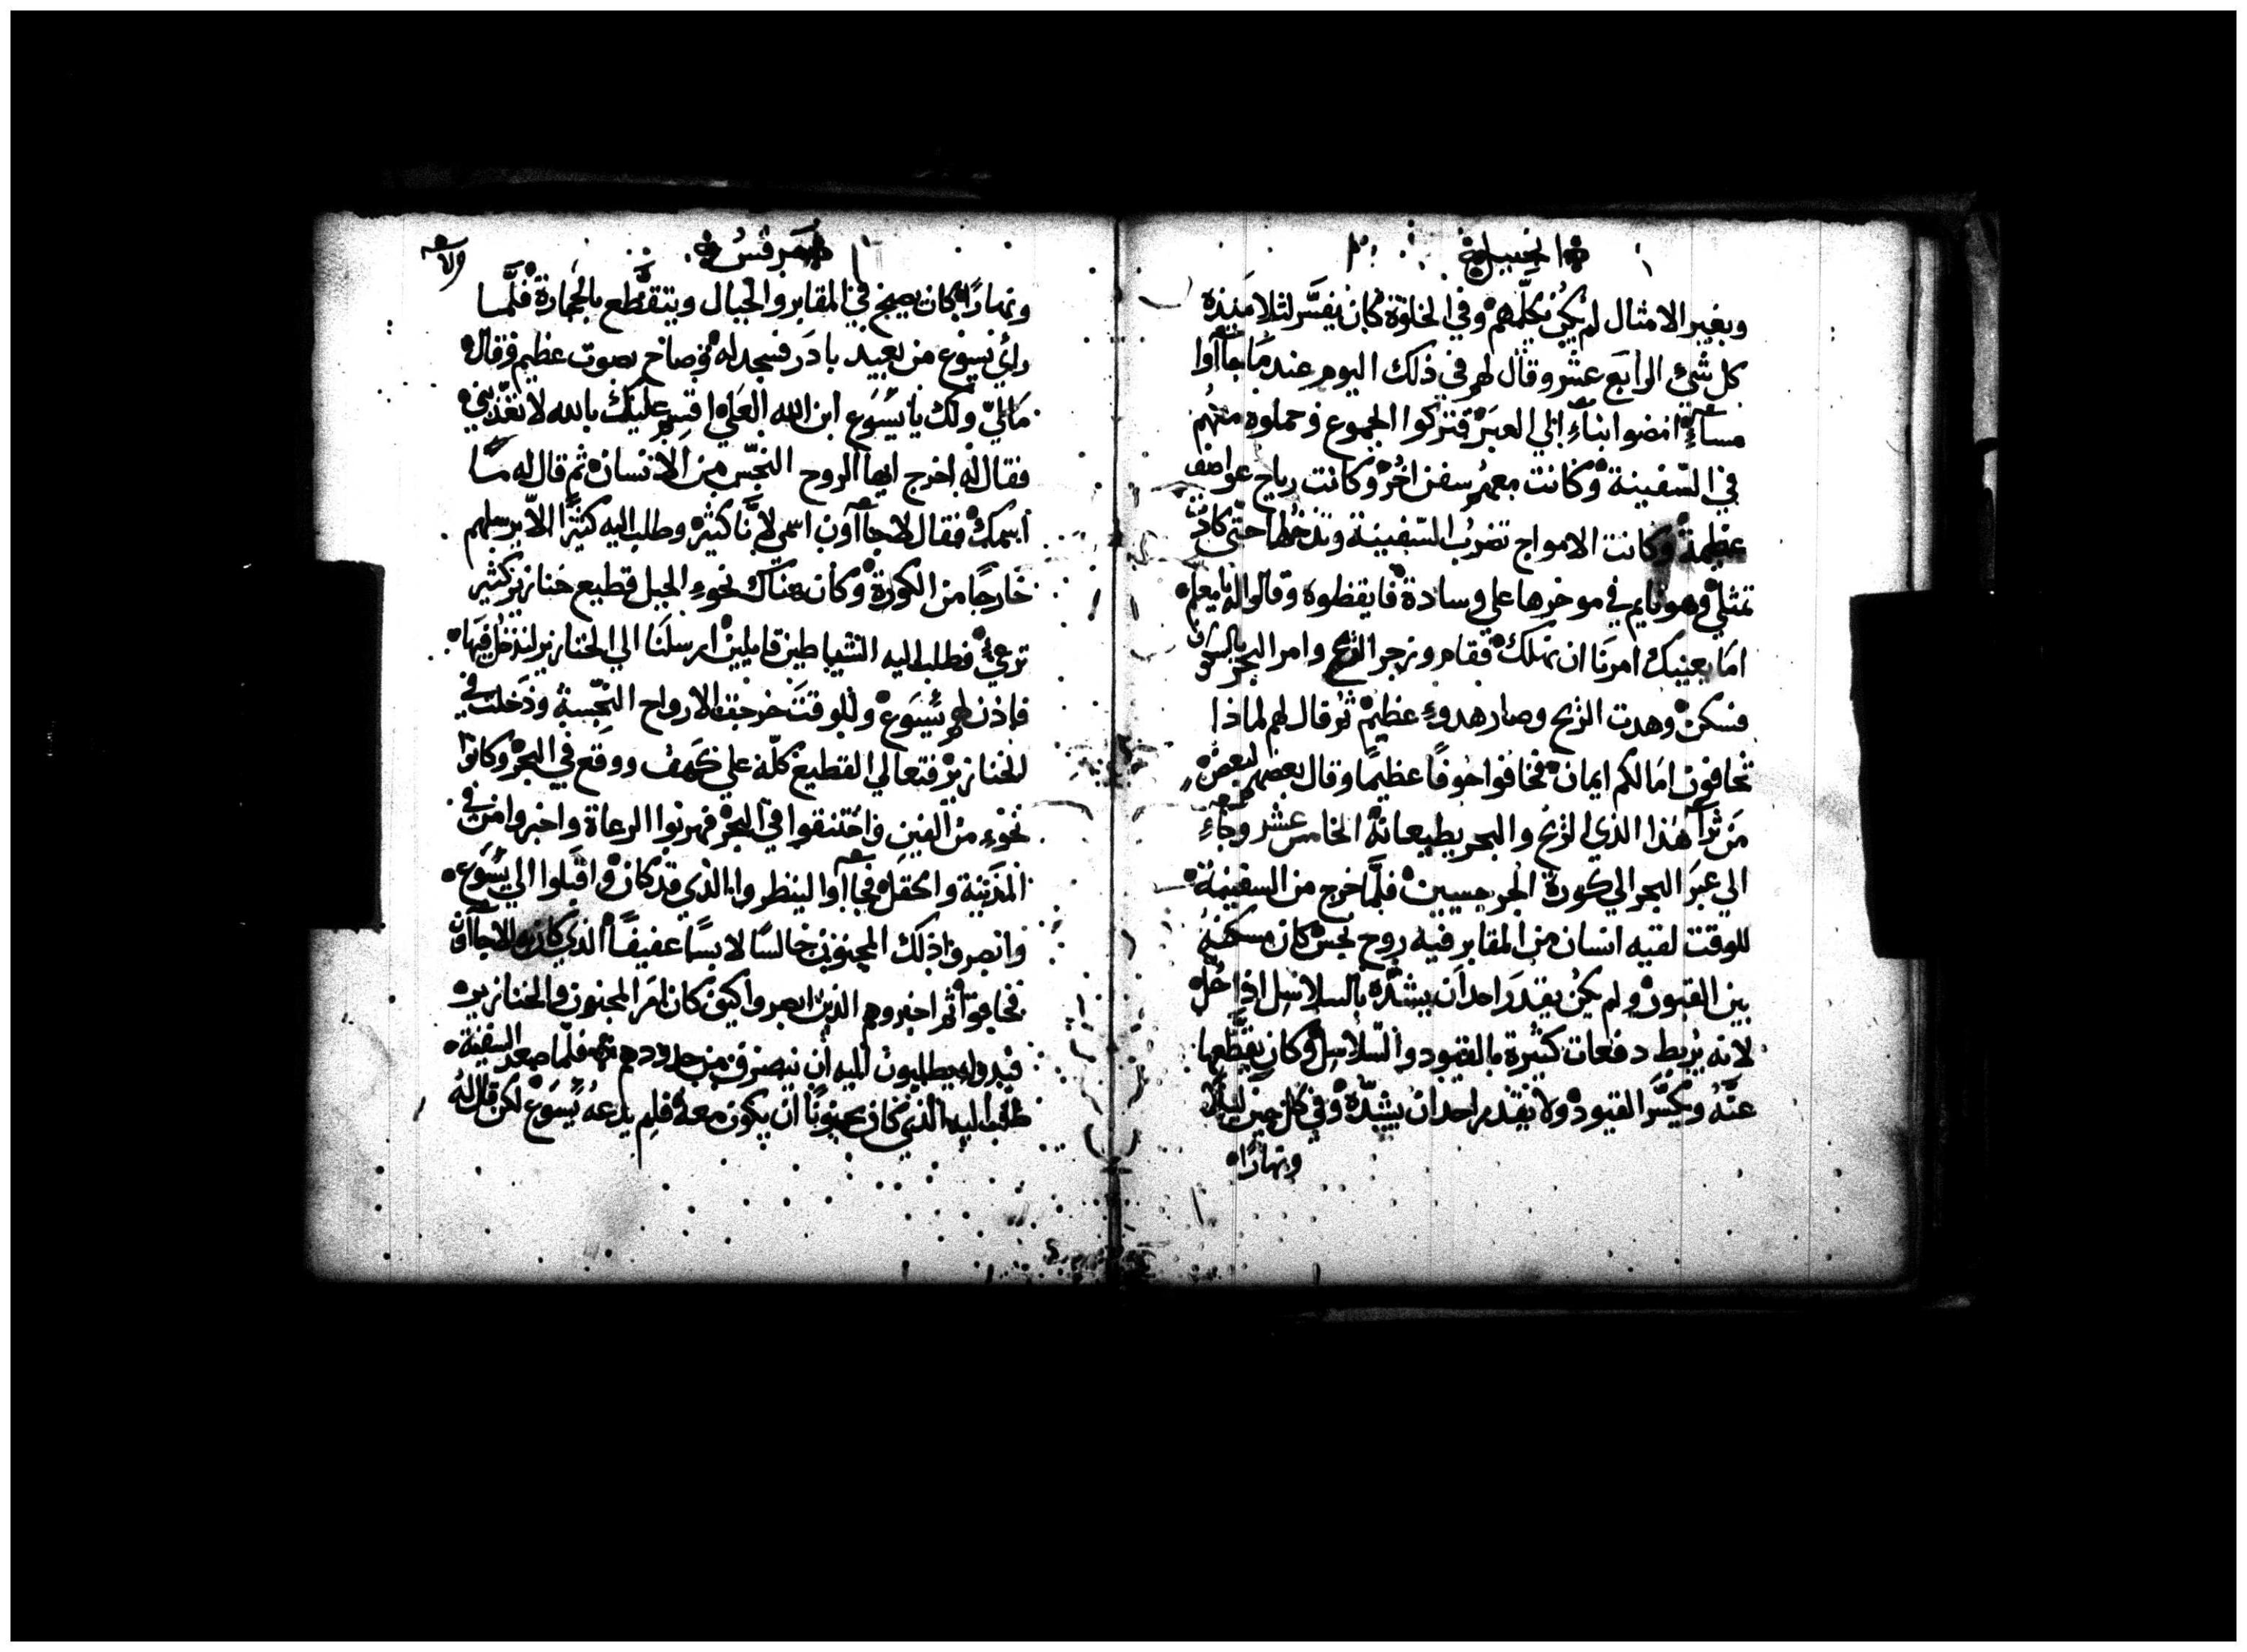 انجيل
وبغير الامثال لم يكن يكلمهم وفي الخلوة كان يفسر لتلاميذه
كل شئ الرابع عشر وقال لهم في ذلك اليوم عند ما جآاوا
مساءً امضوا بناء الي العبر فتركوا الجموع وحملوه منهم
في السفينة وكانت معهم سفن اخر وكانت رياح عواصف
عظيمة وكانت الامواج تضرب السفينة وتدخلها حتي كادت
تمتلي وهو نايم في موخرها علي وسادة فايقظوه وقالوا له يا معلم
اما يعنيك امرنا ان نهلك فقام وزجر الريح وامر البحر بالسكون
فسكن وهدت الريح وصار هدوء عظيم ثم قال لهم لماذا
تخافون اما لكم ايمان فخافوا خوفًا عظيمًا وقال بعضهم لبعض
من ترا هذا الذي الريح والبحر يطيعانه الخامس عشر وجاء
الي عبر البحر الي كورة الجرجسيين فلما خرج من السفينة
للوقت لقيه انسان من المقابر فيه روح نجس كان مسكنه
بين القبور ولم يكن يقدر احد ان يشده بالسلاسل اذا حل
لانه يربط دفعات كثيرة بالقيود والسلاسل وكان يقطعها
عنه ويكسر القيود ولا يقدر احد ان يشده وفي كل حين ليلًا
ونهارًا
مرقس
ونهارًا كان يصيح في المقابر والجبال ويتقطع بالحجارة فلما
راي يسوع من بعيد بادر فسجد له وصاح بصوت عظيم وقال
ما لي ولك يا يسوع ابن الله العلي اقسم عليك بالله لا تعذبني
فقال له اخرج ايها الروح النجس من الانسان ثم قال له ما
اسمك فقال لاجاآون اسمي لانّا كثير وطلب اليه كثيرًا الاّ يرسلهم
خارجًا من الكورة وكان هناك نحو الجبل قطيع خنازير كثير
ترعي فطلب اليه الشياطين قايلين ارسلنا الي الخنازير لندخل فيها
فاذن لهم يسوع وللوقت خرجت الارواح النجسة ودخلت في
الخنازير فتعالي القطيع كله علي كهف ووقع في البحر وكانوا
نحو من الفين واختنقوا في البحر فهربوا الرعاة واخبروا من في
المدينة والحقل فجاآوا لينظروا الذي قد كان واقبلوا الي يسوع
وابصروا ذلك المجنون جالسًا لابسًا عفيفًا الذي كان لاجاآون
فخافوا ثم اخبروهم الذين ابصروا كيف كان امر المجنون والخنازير
فبدوا يطلبون اليه ان ينصرف من حدودهم فلما صعد السفينة
طلب اليه الذي كان مجنونًا ان يكون معه فلم يدعه يسوع لكن قال له